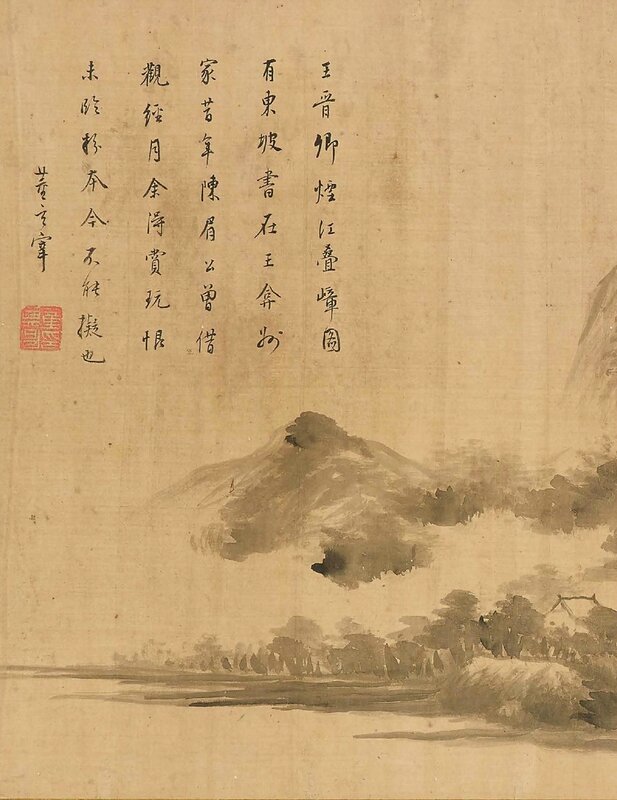 王晉卿煙江叠嶂圖
有東坡書在王弇州
家昔年陳眉公曾借
觀經月余得賞玩恨
未臨粉本今不能擬也
董玄宰